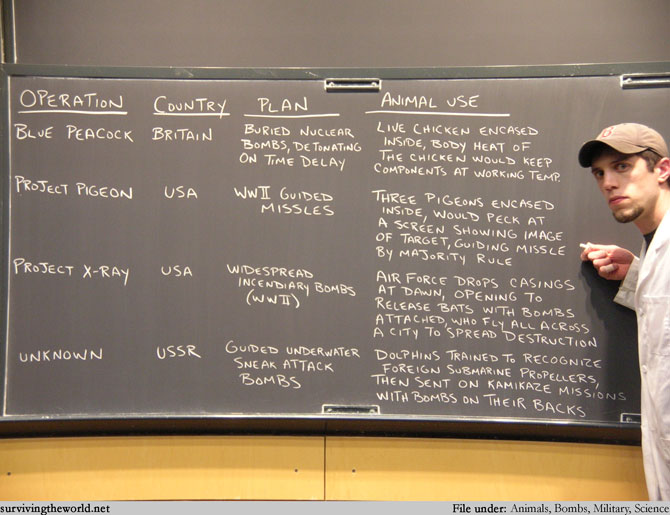 OPERATION COUNTRY PLAN ANIMAL USE
BLUE PEACOCK BRITAIN
BURIED NUCLEAR
BOMBS, DETONATING
ON TIME DELAY
LIVE CHICKEN ENCASED
INSIDE, BODY HEAT OF
THE CHICKEN WOULD KEEP
COMPONENTS AT WORKING TEMP.
PROJECT PIGEON USA
WWII GUIDED
MISSLES
THREE PIGEONS ENCASED
INSIDE, WOULD PECK AT
A SCREEN SHOWING IMAGE
OF TARGET, GUIDING MISSLE
BY MAJORITY RULE
PROJECT X-RAY USA
WIDESPREAD
INCENDIARY BOMBS
(WWII)
AIR FORCE DROPS CASINGS
AT DAWN, OPENING TO
RELEASE BATS WITH BOMBS
ATTACHED, WHO FLY ALL ACROSS
A CITY TO SPREAD DESTRUCTION
UNKNOWN USSR
GUIDED UNDERWATER
SNEAK ATTACK
BOMBS
DOLPHINS TRAINED TO RECOGNIZE
FOREIGN SUBMARINE PROPELLERS,
THEN SENT ON KAMIKAZE MISSIONS
WITH BOMBS ON THEIR BACKS
survivingtheworld.net
File under: Animals, Bombs, Military, Science